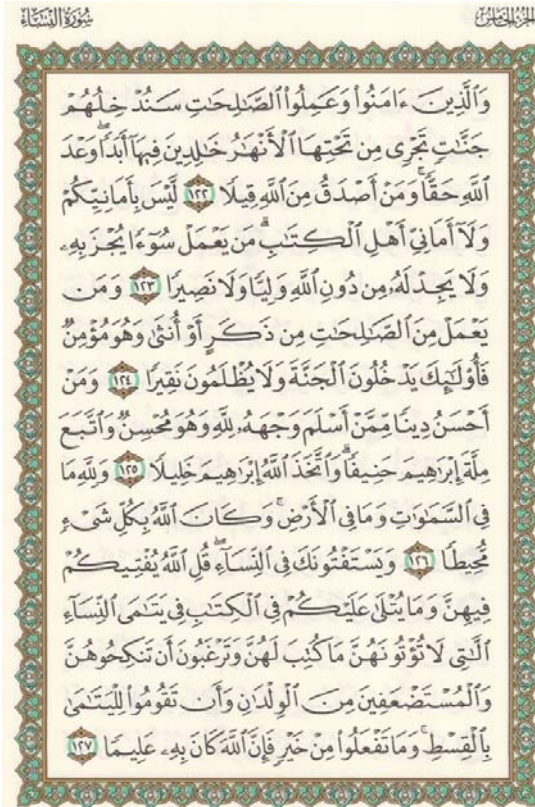 سُورَةُ النِّسَاءِ
الجُزْءُ الخَامِسُ
وَٱلَّذِينَ ءَامَنُوا۟ وَعَمِلُوا۟ ٱلصَّٰلِحَٰتِ سَنُدْخِلُهُمْ
جَنَّٰتٍ تَجْرِى مِن تَحْتِهَا ٱلْأَنْهَٰرُ خَٰلِدِينَ فِيهَآ أَبَدًا ۖ وَعْدَ
ٱللَّهِ حَقًّا ۚ وَمَنْ أَصْدَقُ مِنَ ٱللَّهِ قِيلًا ١٢٢ لَّيْسَ بِأَمَانِيِّكُمْ
وَلَآ أَمَانِىِّ أَهْلِ ٱلْكِتَٰبِ ۗ مَن يَعْمَلْ سُوٓءًا يُجْزَ بِهِۦ
وَلَا يَجِدْ لَهُۥ مِن دُونِ ٱللَّهِ وَلِيًّا وَلَا نَصِيرًا ١٢٣ وَمَن
يَعْمَلْ مِنَ ٱلصَّٰلِحَٰتِ مِن ذَكَرٍ أَوْ أُنثَىٰ وَهُوَ مُؤْمِنٌ
فَأُو۟لَٰٓئِكَ يَدْخُلُونَ ٱلْجَنَّةَ وَلَا يُظْلَمُونَ نَقِيرًا ١٢٤ وَمَنْ
أَحْسَنُ دِينًا مِّمَّنْ أَسْلَمَ وَجْهَهُۥ لِلَّهِ وَهُوَ مُحْسِنٌ وَٱتَّبَعَ
مِلَّةَ إِبْرَٰهِيمَ حَنِيفًا ۗ وَٱتَّخَذَ ٱللَّهُ إِبْرَٰهِيمَ خَلِيلًا ١٢٥ وَلِلَّهِ مَا
فِى ٱلسَّمَٰوَٰتِ وَمَا فِى ٱلْأَرْضِ ۚ وَكَانَ ٱللَّهُ بِكُلِّ شَىْءٍ
مُّحِيطًا ١٢٦ وَيَسْتَفْتُونَكَ فِى ٱلنِّسَآءِ ۖ قُلِ ٱللَّهُ يُفْتِيكُمْ
فِيهِنَّ وَمَا يُتْلَىٰ عَلَيْكُمْ فِى ٱلْكِتَٰبِ فِى يَتَٰمَى ٱلنِّسَآءِ
ٱلَّٰتِى لَا تُؤْتُونَهُنَّ مَا كُتِبَ لَهُنَّ وَتَرْغَبُونَ أَن تَنكِحُوهُنَّ
وَٱلْمُسْتَضْعَفِينَ مِنَ ٱلْوِلْدَٰنِ وَأَن تَقُومُوا۟ لِلْيَتَٰمَىٰ
بِٱلْقِسْطِ ۚ وَمَا تَفْعَلُوا۟ مِنْ خَيْرٍ فَإِنَّ ٱللَّهَ كَانَ بِهِۦ عَلِيمًا ١٢٧